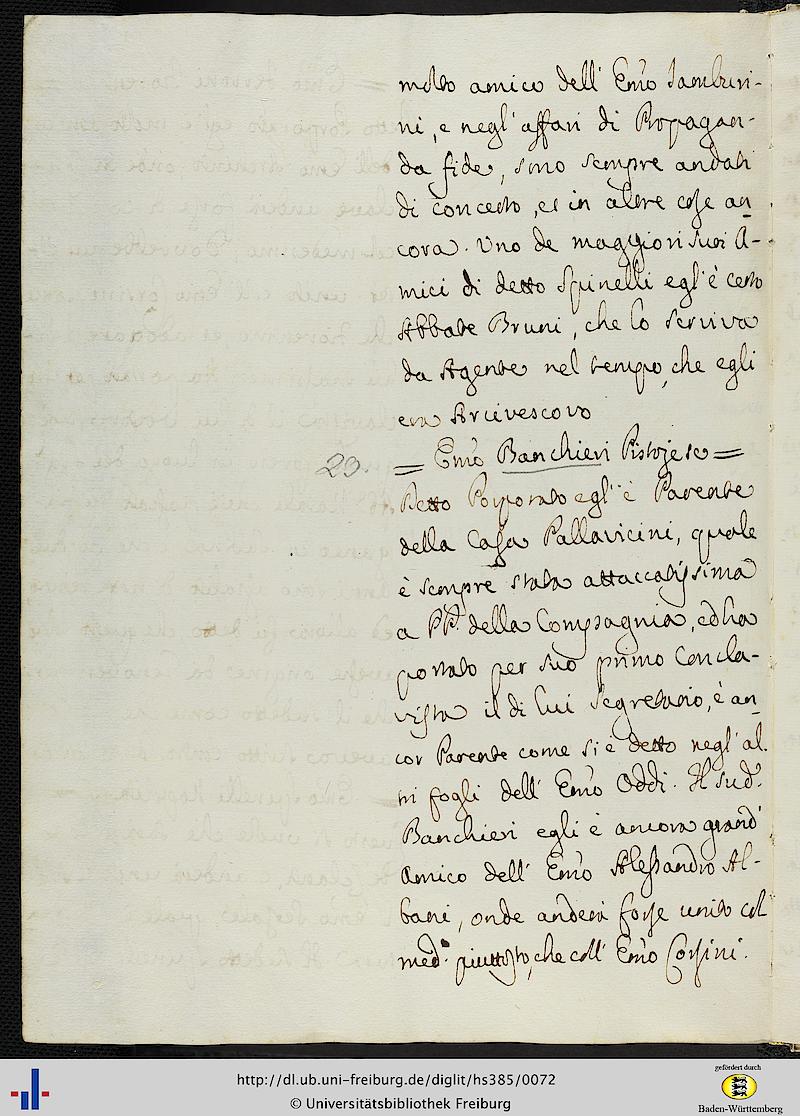 molto amico dell' Emo Tamburi-
ni, e negl'affari di Propagan-
da fide, sono sempre andati
di concerto, et in altre cose an
cora. Uno de maggiori suoi A-
mici di detto Spinelli egl'è certo
Abbate Bruni, che lo serviva
da Agente nel tempo, che egli
era Arcivescovo
23. = Emo Banchieri Pistojese =
Detto Porporato egl'è Parente
della Casa Pallavicini, quale
è sempre stata attaccatissima
a PP. della Compagnia, ed ha
portato per suo primo Concla-
vista il di lui Segretario, è an
cor Parente come si è detto negl'al.
tri fogli dell' Emo Oddi. Il sud.
Banchieri egli è ancora grand'
Amico dell' Emo Alessandro Al-
bani, onde anderà forse unito col
med.o piuttosto, che coll' Emo Corsini.
http://dl.ub.uni-freiburg.de/diglit/hs385/0072
© Universitätsbibliothek Freiburg
gefördert durch
Baden-Württemberg